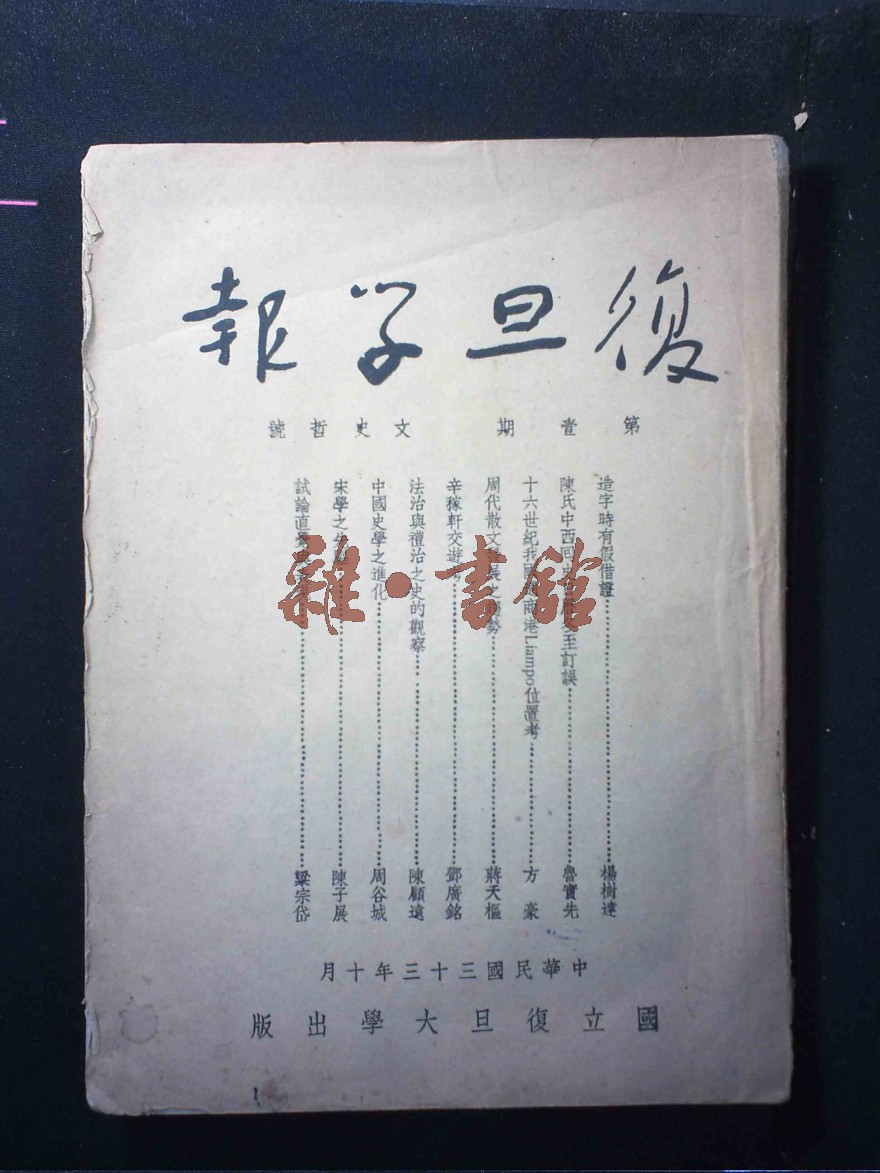 復旦学報
第壹期 文史哲號
造字時有假借證 楊樹達
陳氏中西回史日 至訂誤 魯實先
十六世紀我國 商港Liampo位置考 方豪
周代散文 展之 勢 蔣天樞
辛稼軒交遊考 鄧廣銘
法治與禮治之史的觀察 陳顧遠
中國史學之進化 周谷城
宋學之 陳子展
試論直覺 梁宗岱
中華民國三十三年十月
國立復旦大學出版
雜·書館